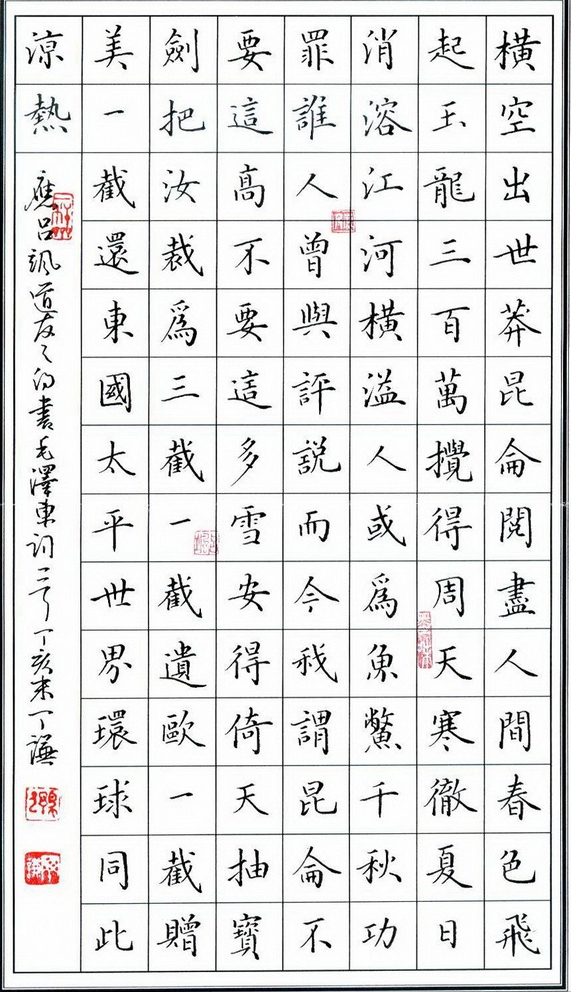 橫空出世莽昆侖閱盡人間春色飛
起玉龍三百萬攪得周天寒徹夏日
消溶江河橫溢人或爲魚鱉千秋功
罪誰人曾與評説而今我謂昆侖不
要這高不要這多雪安得倚天抽寶
劍把汝裁爲三截一截遺歐一截贈
美一截還東國太平世界環球同此
涼熱
應呂颯道友之約書毛澤東詞丁亥末丁謙